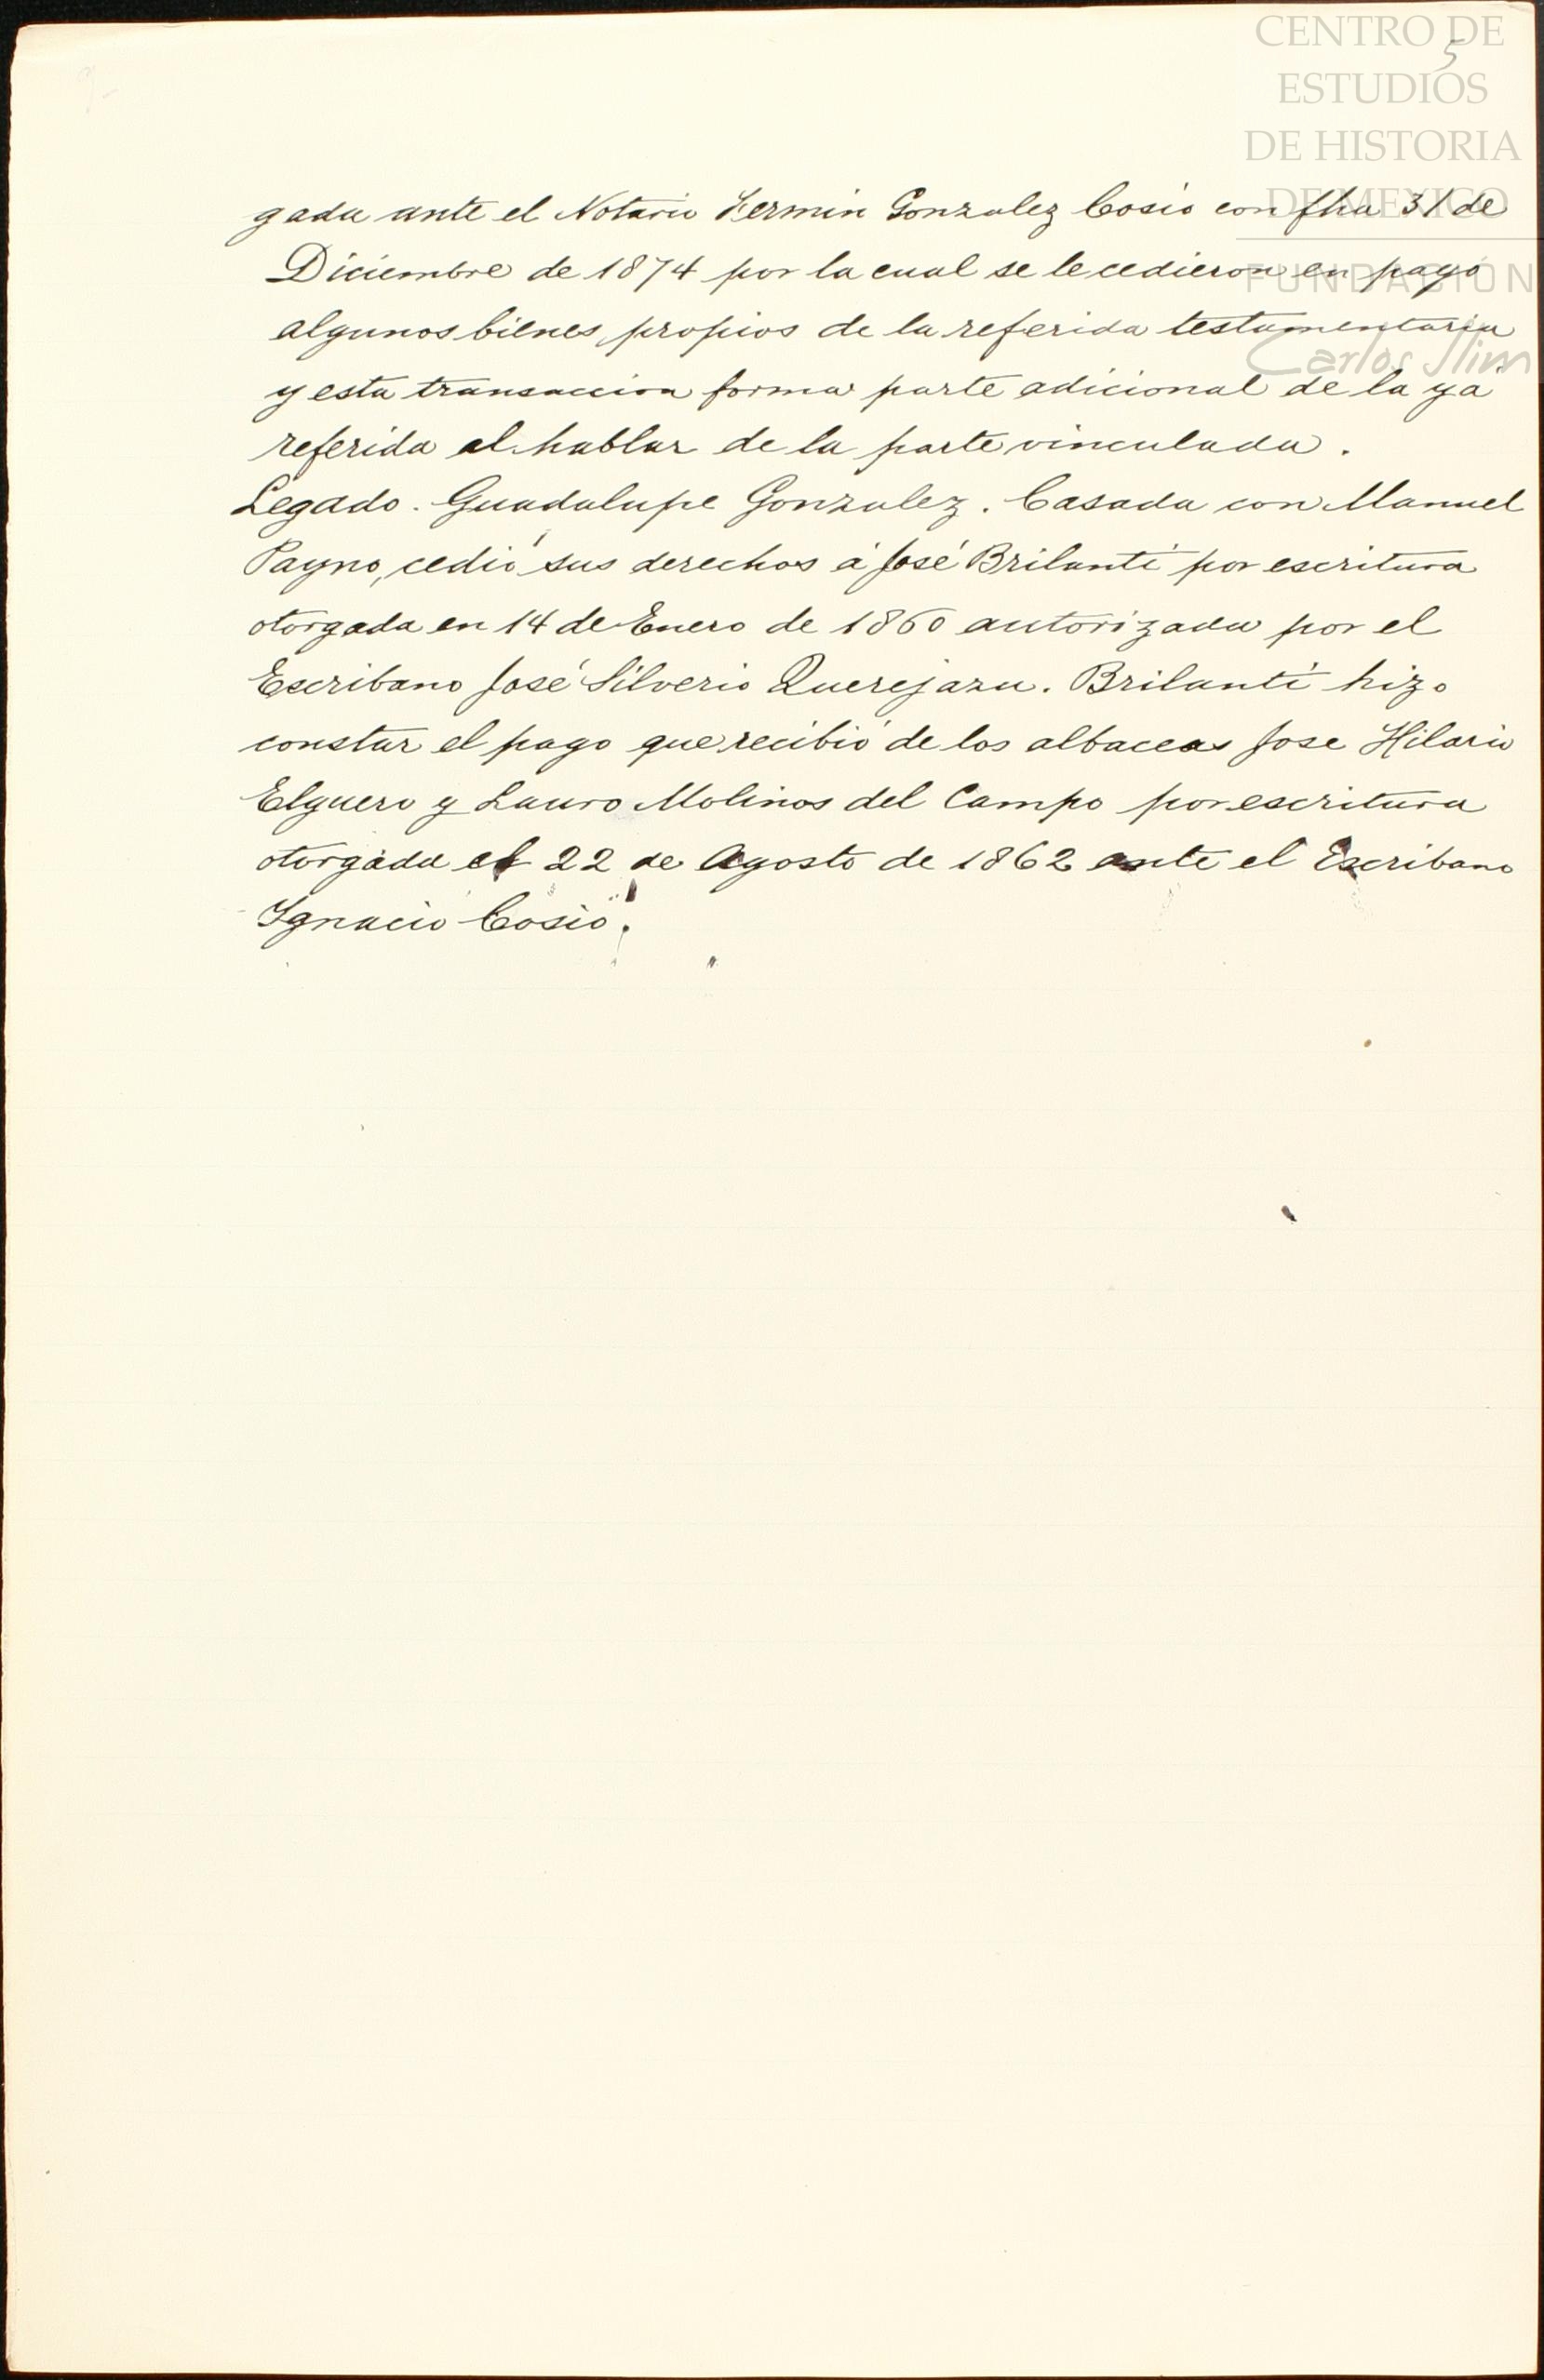 CENTRO DE
5
ESTUDIOS
DE HISTORIA
DE MEXICO
FUNDACIÓN
Carlos Slim
gada ante el Notario Fermin Gonzalez Cosio con fha 31 de
Diciembre de 1874 por la cual se le cedieron en pago
algunos bienes propios de la referida testamentaria
y esta transaccion forma parte adicional de la ya
referida al hablar de la parte vinculada.
Legado. Guadalupe Gonzalez. Casada con Manuel
Payno, cedió sus derechos á José Brilanti por escritura
otorgada en 14 de Enero de 1860 autorizada por el
Escribano José Silverio Querejazu. Brilanti hizo
constar el pago que recibió de los albaceas Jose Hilario
Elguero y Lauro Molinos del Campo por escritura
otorgada el 22 de Agosto de 1862 ante el Escribano
Ignacio Cosio.